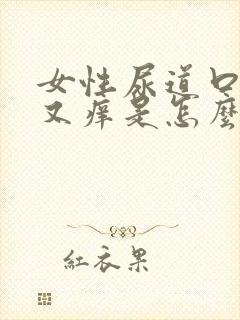 女性尿道口
又痒是怎麼
紅衣果